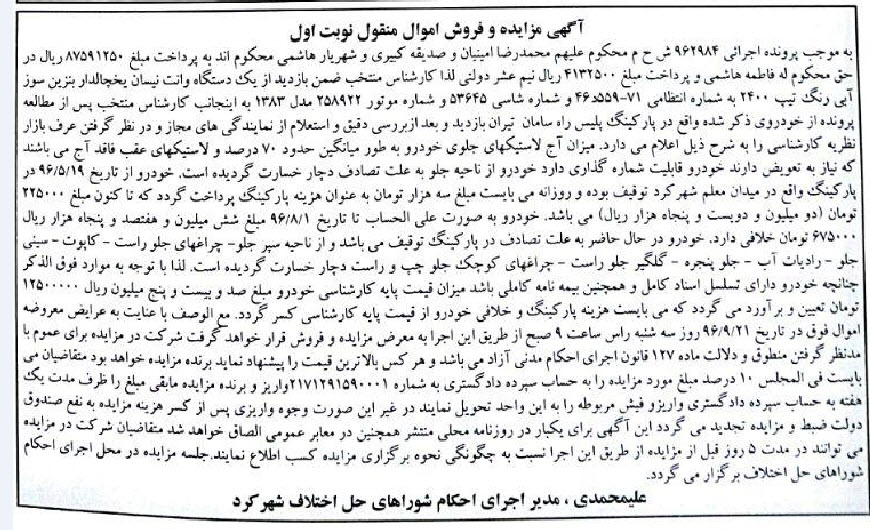 آگهی مزایده و فروش اموال منقول نوبت اول
به موجب پرونده اجرائی ۹۶۲۹۸۴ ش ح م محکوم علیهم محمدرضا امینیان و صدیقه کبیری و شهریار هاشمی محکوم اند به پرداخت مبلغ ۸۷۵۹۱۲۵۰ ریال در
حق محکوم له فاطمه هاشمی و پرداخت مبلغ ۴۱۳۲۵۰۰ ریال نیم عشر دولتی لذا کارشناس منتخب ضمن بازدید از یک دستگاه وانت نیسان یخچالدار بنزین سوز
آبی رنگ تیپ ۲۴۰۰ به شماره انتظامی ۷۱-۵۵۹د۴۶ و شماره شاسی ۵۳۶۴۵ و شماره موتور ۲۵۸۹۲۲ مدل ۱۳۸۳ به اینجانب کارشناس منتخب پس از مطالعه
پرونده از خودروی ذکر شده واقع در پارکینگ پلیس راه سامان تیران بازدید و بعد ازبررسی دقیق و استعلام از نمایندگی های مجاز و در نظر گرفتن عرف بازار
نظریه کارشناسی را به شرح ذیل اعلام می دارد. میزان آج لاستیکهای جلوی خودرو به طور میانگین حدود ۷۰ درصد و لاستیکهای عقب فاقد آج می باشند
که نیاز به تعویض دارند خودرو قابلیت شماره گذاری دارد خودرو از ناحیه جلو به علت تصادف دچار خسارت گردیده است. خودرو از تاریخ ۹۶/۵/۱۹ در
پارکینگ واقع در میدان معلم شهرکرد توقیف بوده و روزانه می بایست مبلغ سه هزار تومان به عنوان هزینه پارکینگ پرداخت گردد که تا کنون مبلغ ۲۲۵۰۰۰
تومان (دو میلیون و دویست و پنجاه هزار ریال) می باشد. خودرو به صورت علی الحساب تا تاریخ ۹۶/۸/۱ مبلغ شش میلیون و هفتصد و پنجاه هزار ریال
۶۷۵۰۰۰ تومان خلافی دارد. خودرو در حال حاضر به علت تصادف در پارکینگ توقیف می باشد و از ناحیه سپر جلو- چراغهای جلو راست - کاپوت - سینی
جلو - رادیات آب - جلو پنجره - گلگیر جلو راست - چراغهای کوچک جلو چپ و راست دچار خسارت گردیده است. لذا با توجه به موارد فوق الذکر
چنانچه خودرو دارای تسلسل اسناد کامل و همچنین بیمه نامه کاملی باشد میزان قیمت پایه کارشناسی خودرو مبلغ صد و بیست و پنج میلیون ریال ۱۲۵۰۰۰۰۰
تومان تعیین و برآورد می گردد که می بایست هزینه پارکینگ و خلافی خودرو از قیمت پایه کارشناسی کسر گردد. مع الوصف با عنایت به عرایض معروضه
اموال فوق در تاریخ ۹۶/۹/۲۱ روز سه شنبه راس ساعت ۹ صبح از طریق این اجرا به معرض مزایده و فروش قرار خواهد گرفت شرکت در مزایده برای عموم با
مدنظر گرفتن منطوق و دلالت ماده ۱۲۷ قانون اجرای احکام مدنی آزاد می باشد و هر کس بالاترین قیمت را پیشنهاد نماید برنده مزایده خواهد بود متقاضیان می
بایست فی المجلس ۱۰ درصد مبلغ مورد مزایده را به حساب سپرده دادگستری به شماره ۲۱۷۱۲۹۱۵۹۰۰۰۱واریز و برنده مزایده مابقی مبلغ را ظرف مدت یک
هفته به حساب سپرده دادگستری واریزو فیش مربوطه را به این واحد تحویل نمایند در غیر این صورت وجوه واریزی پس از کسر هزینه مزایده به نفع صندوق
دولت ضبط و مزایده تجدید می گردد این آگهی برای یکبار در روزنامه محلی منتشر همچنین در معابر عمومی الصاق خواهد شد متقاضیان شرکت در مزایده
می توانند در مدت ۵ روز قبل از مزایده از طریق این اجرا نسبت به چگونگی نحوه برگزاری مزایده کسب اطلاع نمایند.جلسه مزایده در محل اجرای احکام
شوراهای حل اختلاف برگزار می گردد.
علیمحمدی ، مدیر اجرای احکام شوراهای حل اختلاف شهرکرد